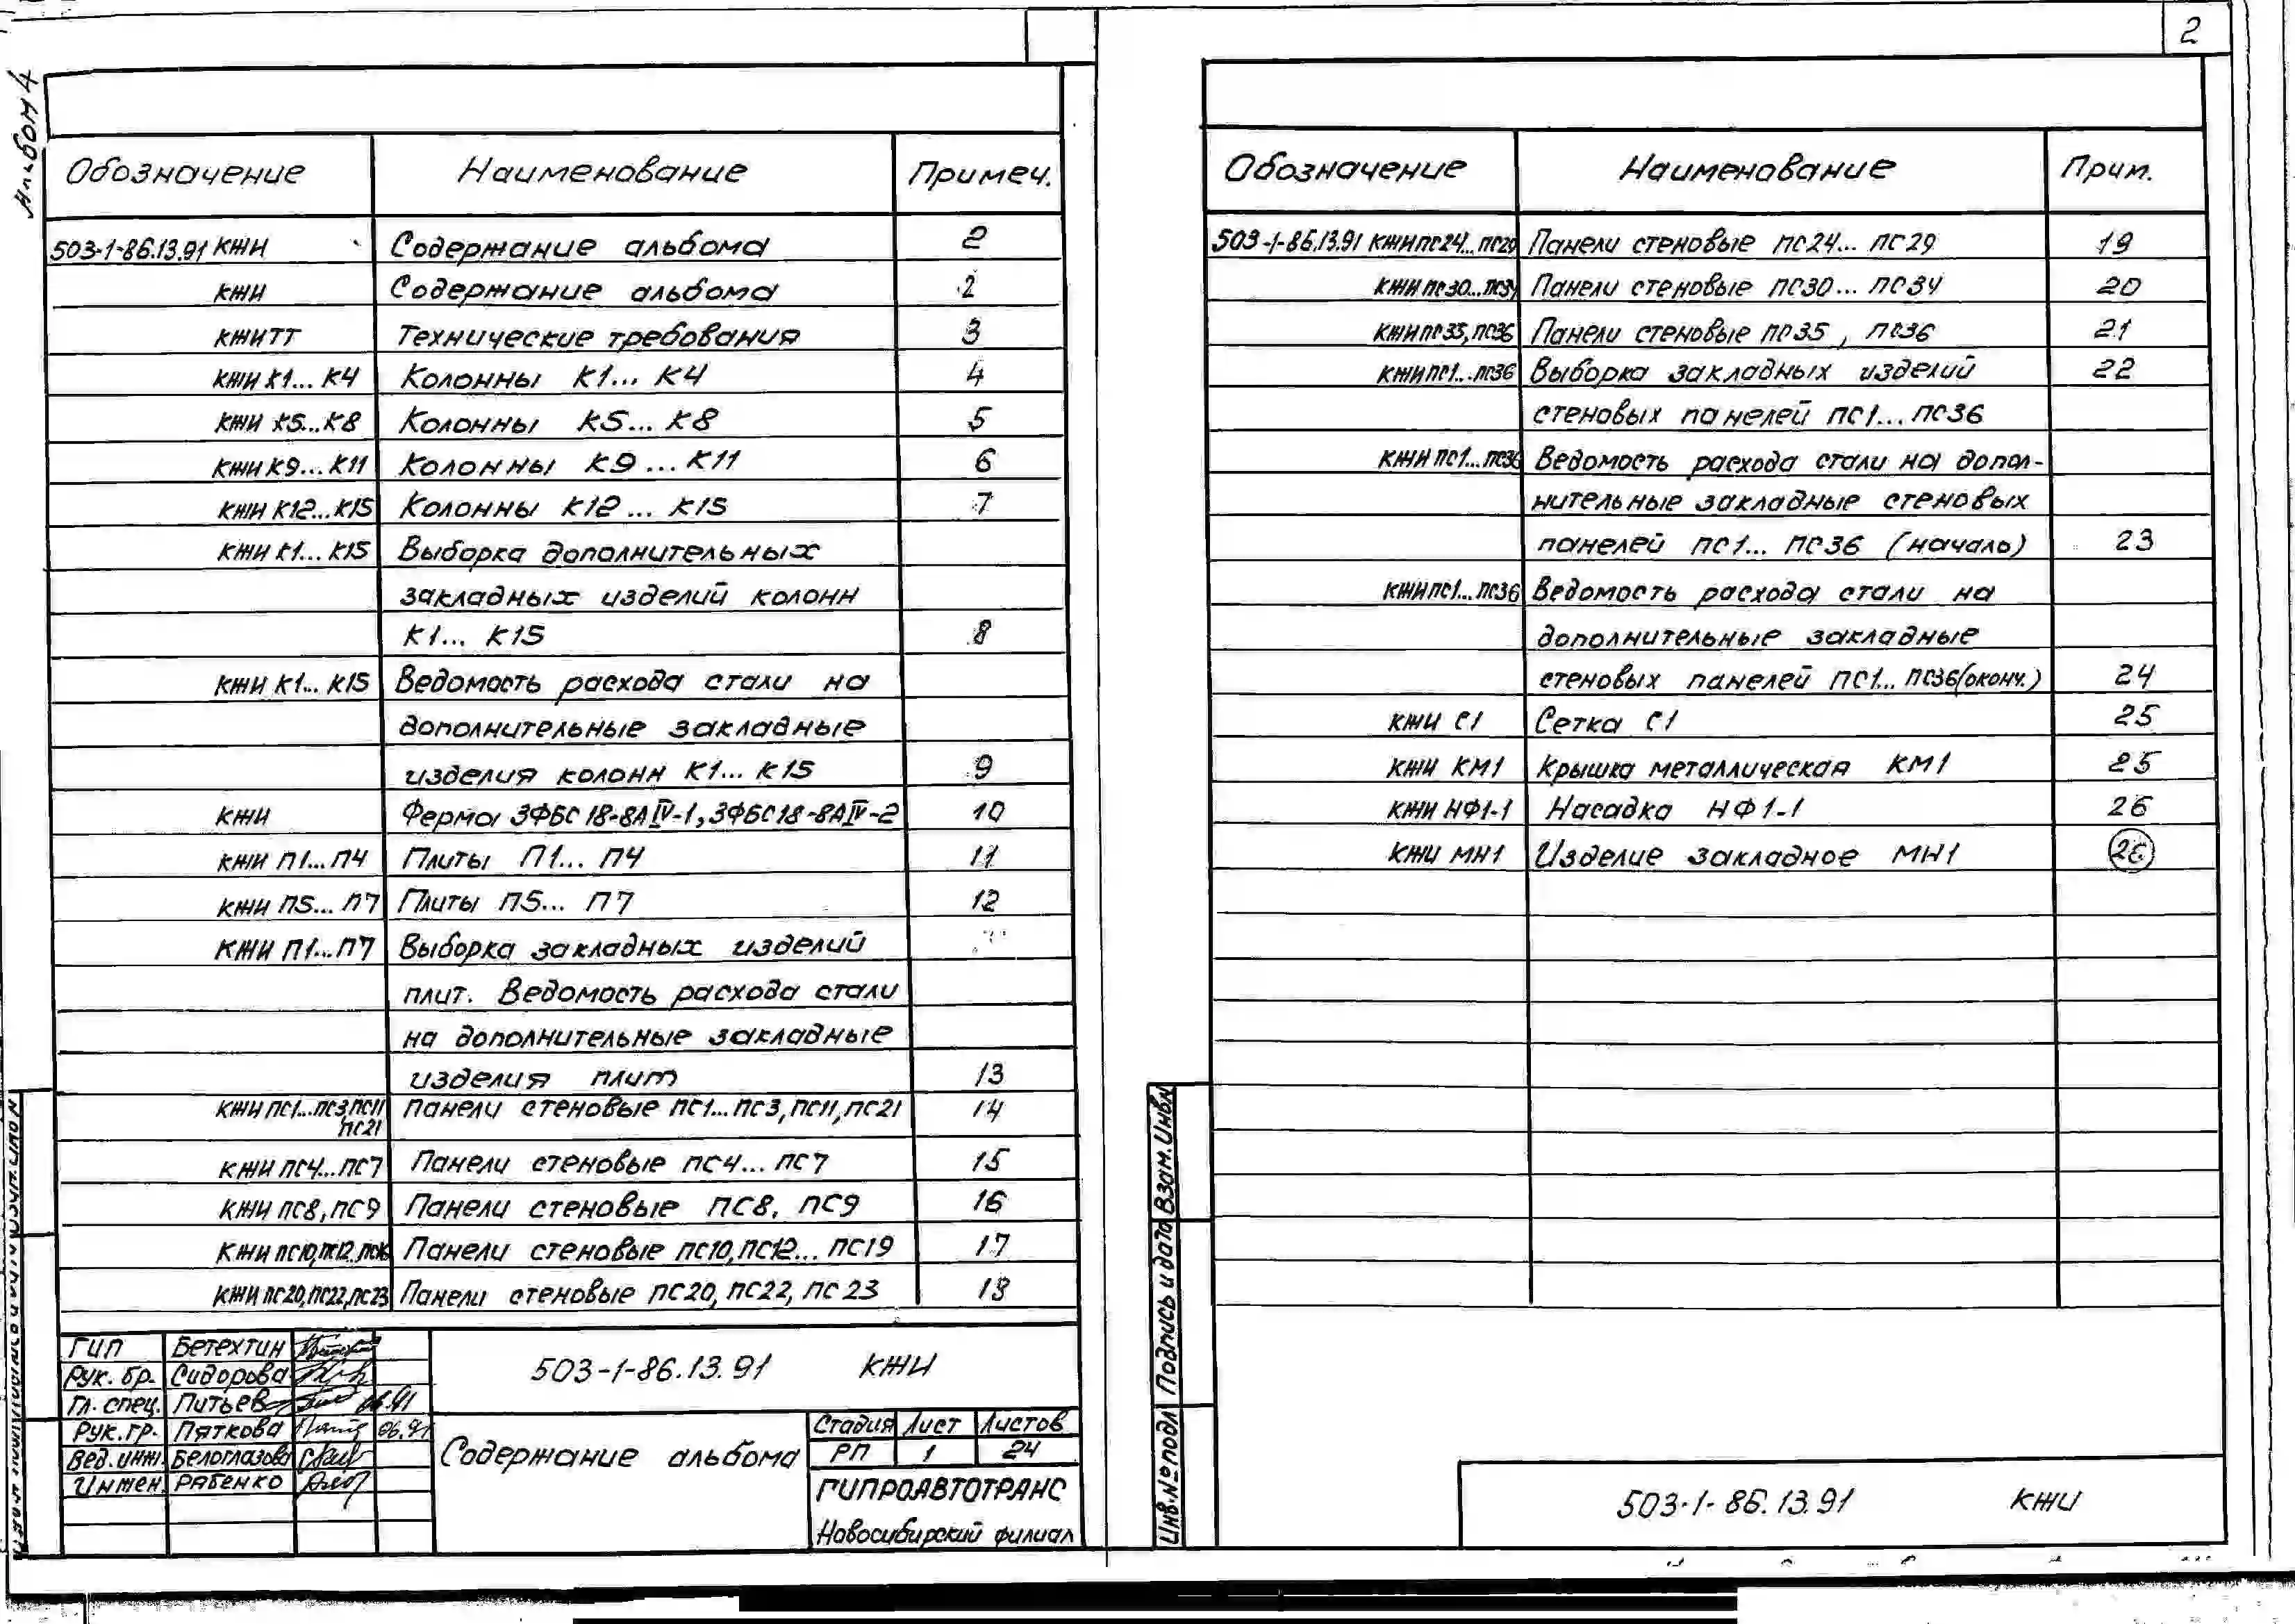 2
Альбом 4
Обозначение Наименование Примеч.
503-1-86.13.91 КЖИ Содержание альбома 2
КЖИ Содержание альбома 2
КЖИ ТТ Технические требования 3
КЖИ К1... К4 Колонны К1... К4 4
КЖИ К5...К8 Колонны К5... К8 5
КЖИ К9...К11 Колонны К9...К11 6
КЖИ К12...К15 Колонны К12... К15 7
КЖИ К1... К15 Выборка дополнительных
закладных изделий колонн
К1... К15 8
КЖИ К1... К15 Ведомость расхода стали на
дополнительные закладные
изделия колонн К1... К15 9
КЖИ Ферма 3ФБС 18-8АIV-1, 3ФБС18-8АIV-2 10
КЖИ П1... П4 Плиты П1... П4 11
КЖИ П5... П7 Плиты П5... П7 12
КЖИ П1...П7 Выборка закладных изделий
плит. Ведомость расхода стали
на дополнительные закладные
изделия плит 13
КЖИ ПС1...ПС3,ПС11 Панели стеновые ПС1...ПС3,ПС11,ПС21 14
ПС21
КЖИ ПС4...ПС7 Панели стеновые ПС4... ПС7 15
КЖИ ПС8, ПС9 Панели стеновые ПС8, ПС9 16
КЖИ ПС10,ПС12... Панели стеновые ПС10,ПС12... ПС19 17
КЖИ ПС20,ПС22,ПС23 Панели стеновые ПС20, ПС22, ПС23 18
ГИП Бетехтин
Рук. бр. Сидорова
Гл. спец. Питьев 06.91
Рук. гр. Пяткова 06.91
Вед. инж. Белоглазова
Инжен. Рябенко
503-1-86.13.91 КЖИ
Содержание альбома
Стадия Лист Листов
РП 1 24
ГИПРОАВТОТРАНС
Новосибирский филиал
Обозначение Наименование Прим.
503-1-86.13.91 КЖИ ПС24...ПС29 Панели стеновые ПС24... ПС29 19
КЖИ ПС30...ПС34 Панели стеновые ПС30... ПС34 20
КЖИ ПС35, ПС36 Панели стеновые ПС35, ПС36 21
КЖИ ПС1...ПС36 Выборка закладных изделий 22
стеновых панелей ПС1... ПС36
КЖИ ПС1...ПС36 Ведомость расхода стали на допол-
нительные закладные стеновых
панелей ПС1... ПС36 (началь) 23
КЖИ ПС1...ПС36 Ведомость расхода стали на
дополнительные закладные
стеновых панелей ПС1... ПС36(оконч.) 24
КЖИ С1 Сетка С1 25
КЖИ КМ1 Крышка металлическая КМ1 25
КЖИ НФ1-1 Насадка НФ1-1 26
КЖИ МН1 Изделие закладное МН1 26
Взам.Инв.№
Подпись и дата
Инв.№ подл
503-1-86.13.91 КЖИ